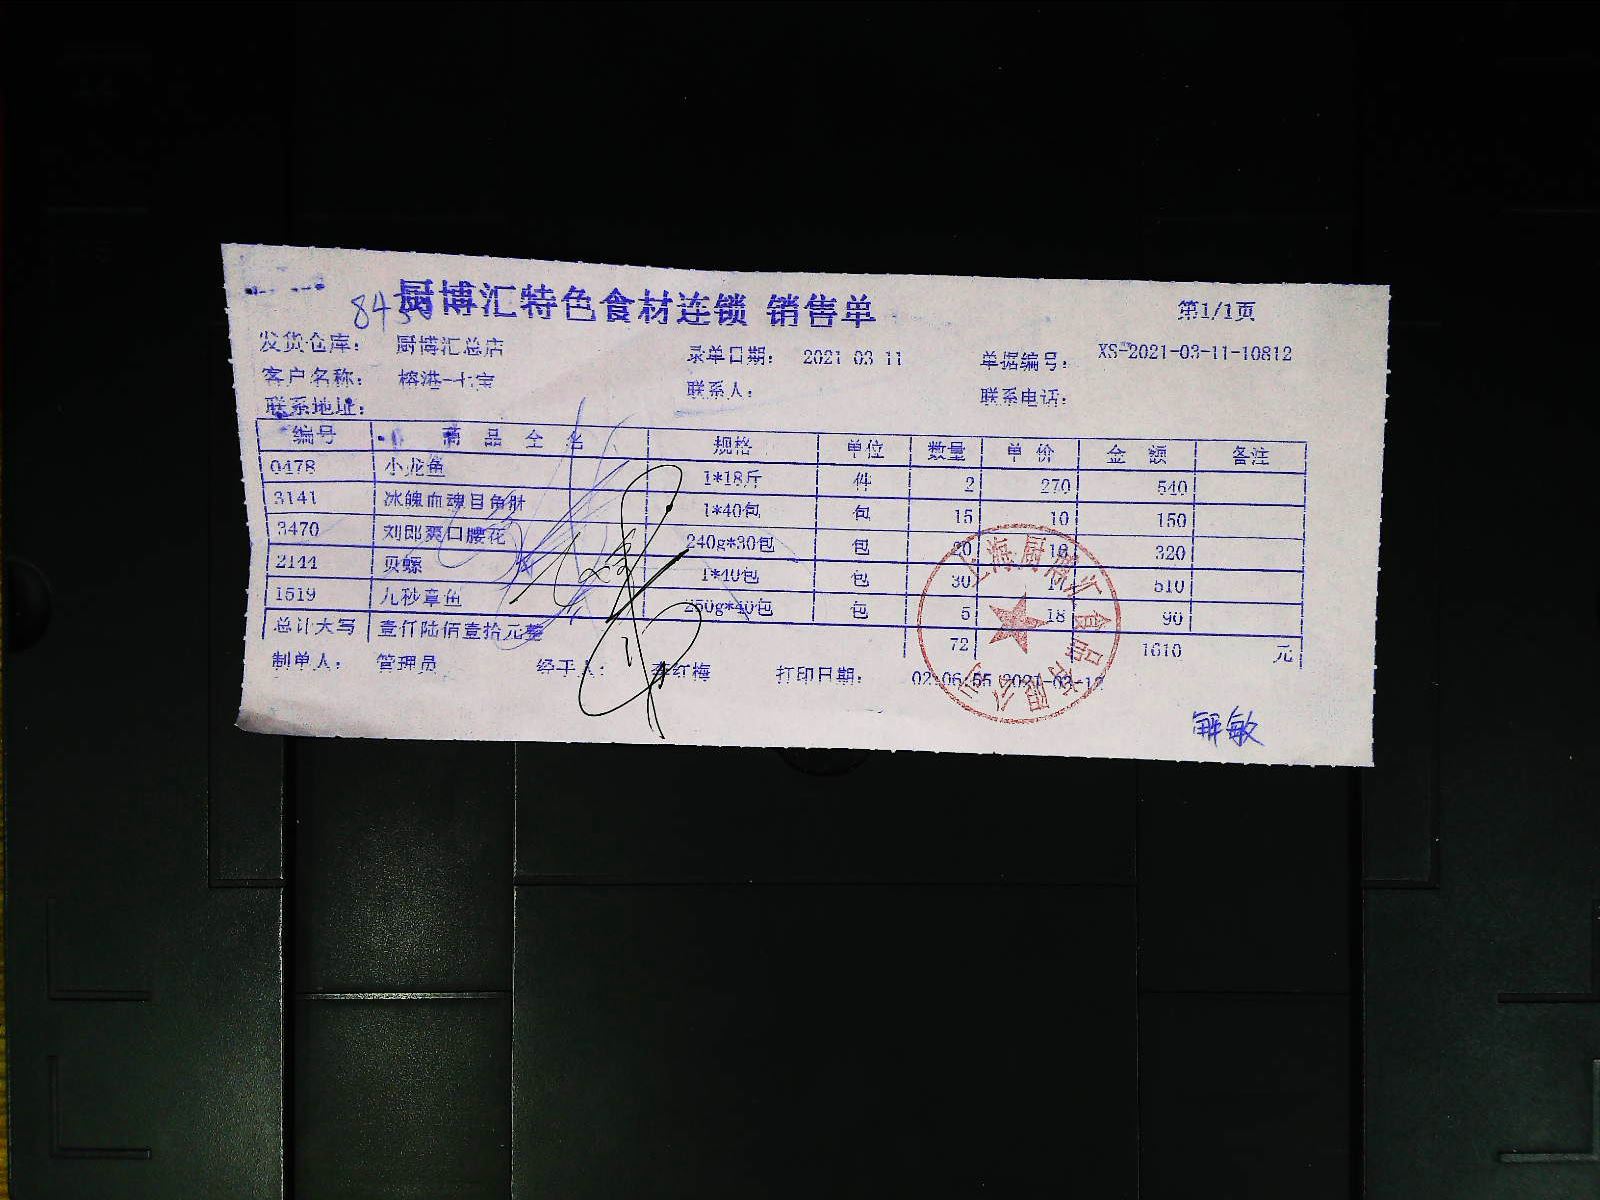 厨博汇特色食材连锁 销售单 第1/1页
发货仓库： 厨博汇总店 录单日期： 2021-03-11 单据编号： XS-2021-03-11-10812
客户名称： 榕港-七宝 联系人： 联系电话：
联系地址：
编号 商品全名 规格 单位 数量 单价 金额 备注
0478 小龙鱼 1*18斤 件 2 270 540
3141 冰魄血魂目鱼财 1*40包 包 15 10 150
3470 刘郎爽口腰花 240g*30包 包 20 16 320
2144 贝螺 1*40包 包 30 17 510
1519 九秒章鱼 250g*40包 包 5 18 90
总计大写 壹仟陆佰壹拾元整 72 1610 元
制单人： 管理员 经手人： 李红梅 打印日期： 02:06:55 2021-03-12
上海厨博汇食品有限公司
解敏